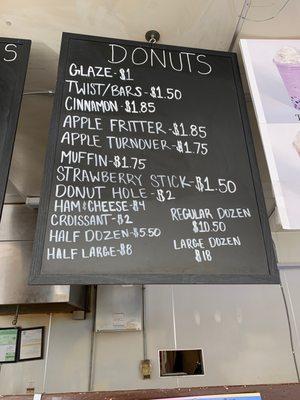 DONUTS
GLAZE-$1
TWIST/BARS-$1.50
CINNAMON-$1.85
APPLE FRITTER-$1.85
APPLE TURNOVER-$1.75
MUFFIN-$1.75
STRAWBERRY STICK-$1.50
DONUT HOLE-$2
HAM & CHEESE-$4
CROISSANT-$2
HALF DOZEN-$5.50
HALF LARGE-$8
REGULAR DOZEN
$10.50
LARGE DOZEN
$18
S